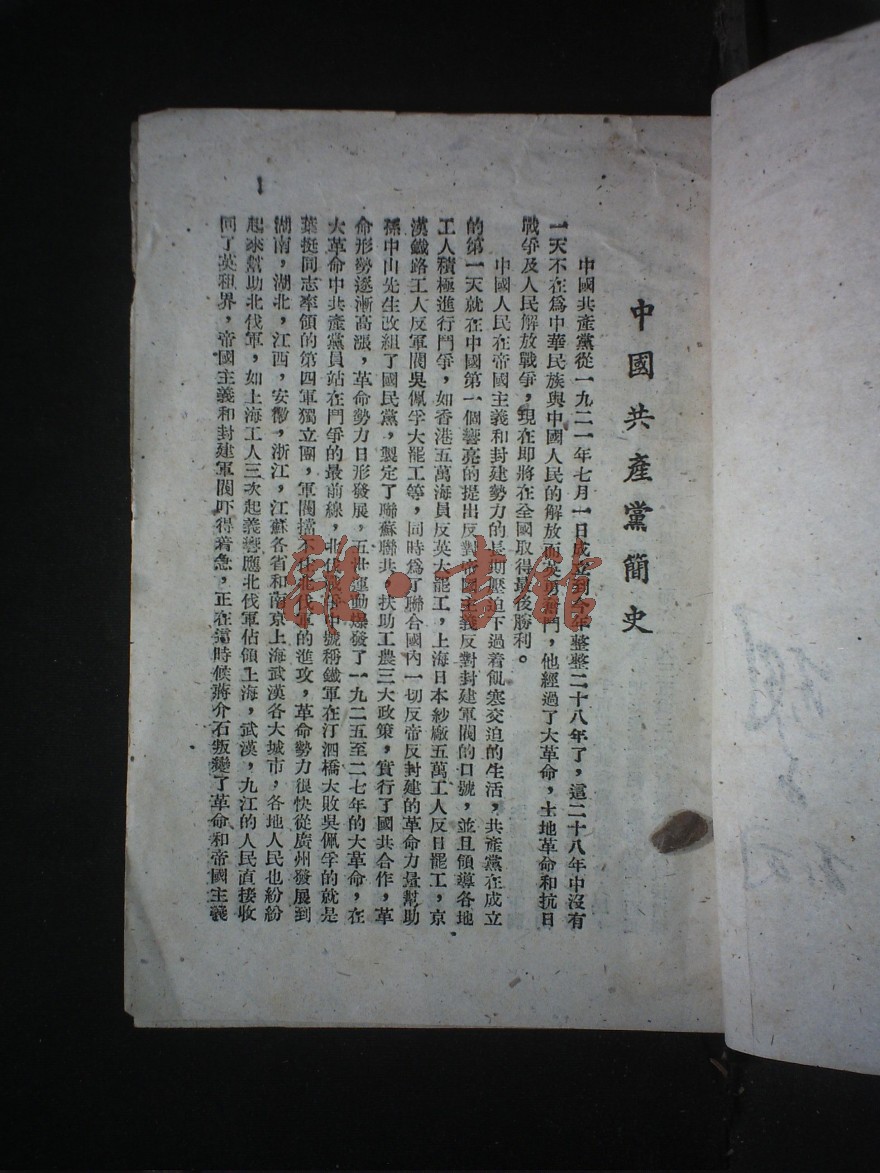 中國共產黨簡史
中國共產黨從一九二一年七月一日成立到今年整整二十八年了，這二十八年中沒有
一天不在爲中華民族與中國人民的解放而英勇奮鬥，他經過了大革命，土地革命和抗日
戰爭及人民解放戰爭，現在即將在全國取得最後勝利。
中國人民在帝國主義和封建勢力的長期壓迫下過着飢寒交迫的生活，共產黨在成立
的第一天就在中國第一個響亮的提出反對帝國主義反對封建軍閥的口號，並且領導各地
工人積極進行鬥爭，如香港五萬海員反英大罷工，上海日本紗廠五萬工人反日罷工，京
漢鐵路工人反軍閥吳佩孚大罷工等，同時爲了聯合國內一切反帝反封建的革命力量幫助
孫中山先生改組了國民黨，製定了聯蘇聯共，扶助工農三大政策，實行了國共合作，革
命形勢逐漸高漲，革命勢力日形發展，五卅運動爆發了一九二五至二七年的大革命，在
大革命中共產黨員站在鬥爭的最前線，北伐戰爭中號稱鐵軍在汀泗橋大敗吳佩孚的就是
葉挺同志率領的第四軍獨立團，軍閥擋不住北伐軍的進攻，革命勢力很快從廣州發展到
湖南，湖北，江西，安徽，浙江，江蘇各省和南京上海武漢各大城市，各地人民也紛紛
起來幫助北伐軍，如上海工人三次起義響應北伐軍佔領上海，武漢，九江的人民直接收
回了英租界，帝國主義和封建軍閥吓得着急，正在這時候蔣介石叛變了革命和帝國主義
1
雜·書館